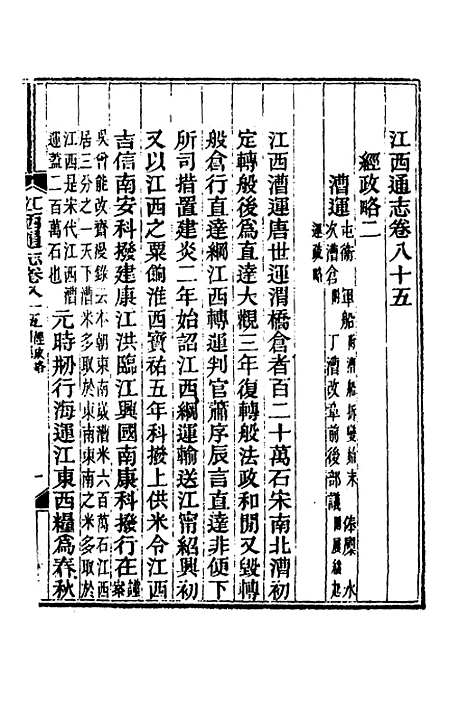 江西通志卷八十五
經政略二
漕運
屯衛　軍船附漕船拆變始末　俸廩　水
次漕倉附　丁漕改章前後部議附展緩起
運疏略
江西漕運唐世運渭橋倉者百二十萬石宋南北漕初
定轉般後為直達大觀三年復轉般法政和間又毀轉
般倉行直達綱江西轉運判官蕭序辰言直達非便下
所司措置建炎二年始詔江西綱運輸送江甯紹興初
又以江西之粟餉淮西寶祐五年科撥上供米令江西
吉信南安科撥建康江洪臨江興國南康科撥行在謹案
吳曾能改齋漫錄云本朝東南歲漕米六百萬石江西
居三分之一天下漕米多取於東南東南之米多取於
江西是宋代江西漕
運蓋二百萬石也
元時剙行海運江東西糧為春秋
江西通志卷八十五　經政略　一